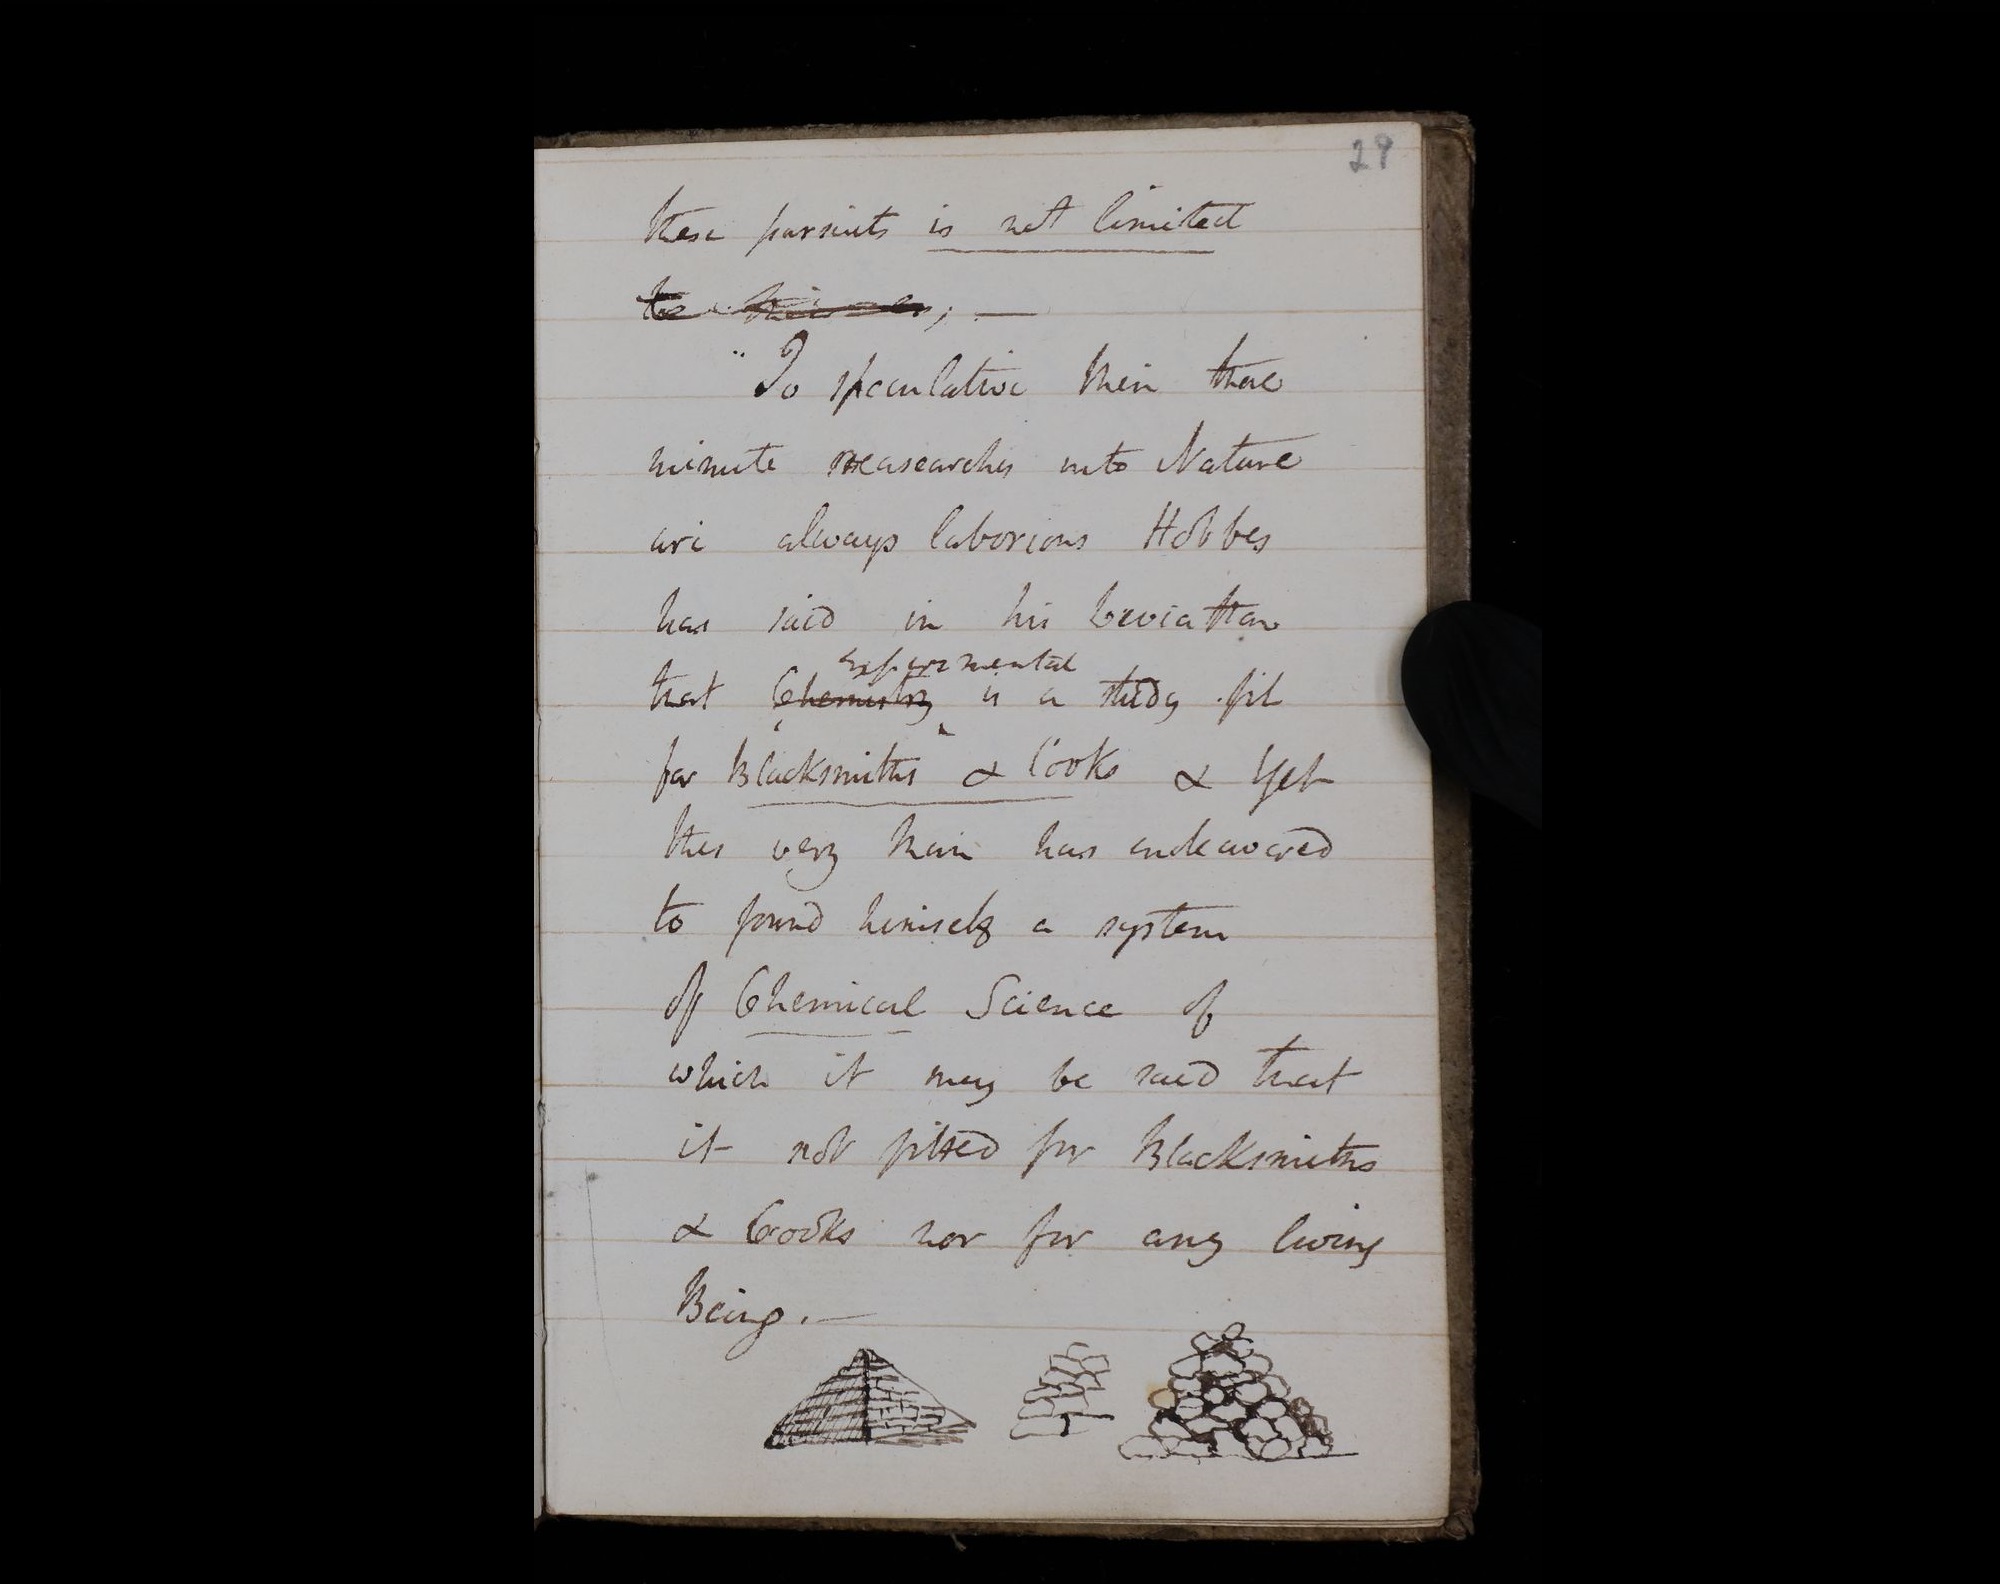 29
these pursuits is not limited
to ;—
"To speculative Men these
minute reasearches into Nature
are always laborious Hobbes
has said in his Leviathan
experimental
that Chemistry is a study fit
for Blacksmiths & Cooks & Yet
this very Man has endeavored
to found himself a system
of Chemical Science of
which it may be said that
it not fitted for Blacksmiths
& Cooks nor for any living
Being.—